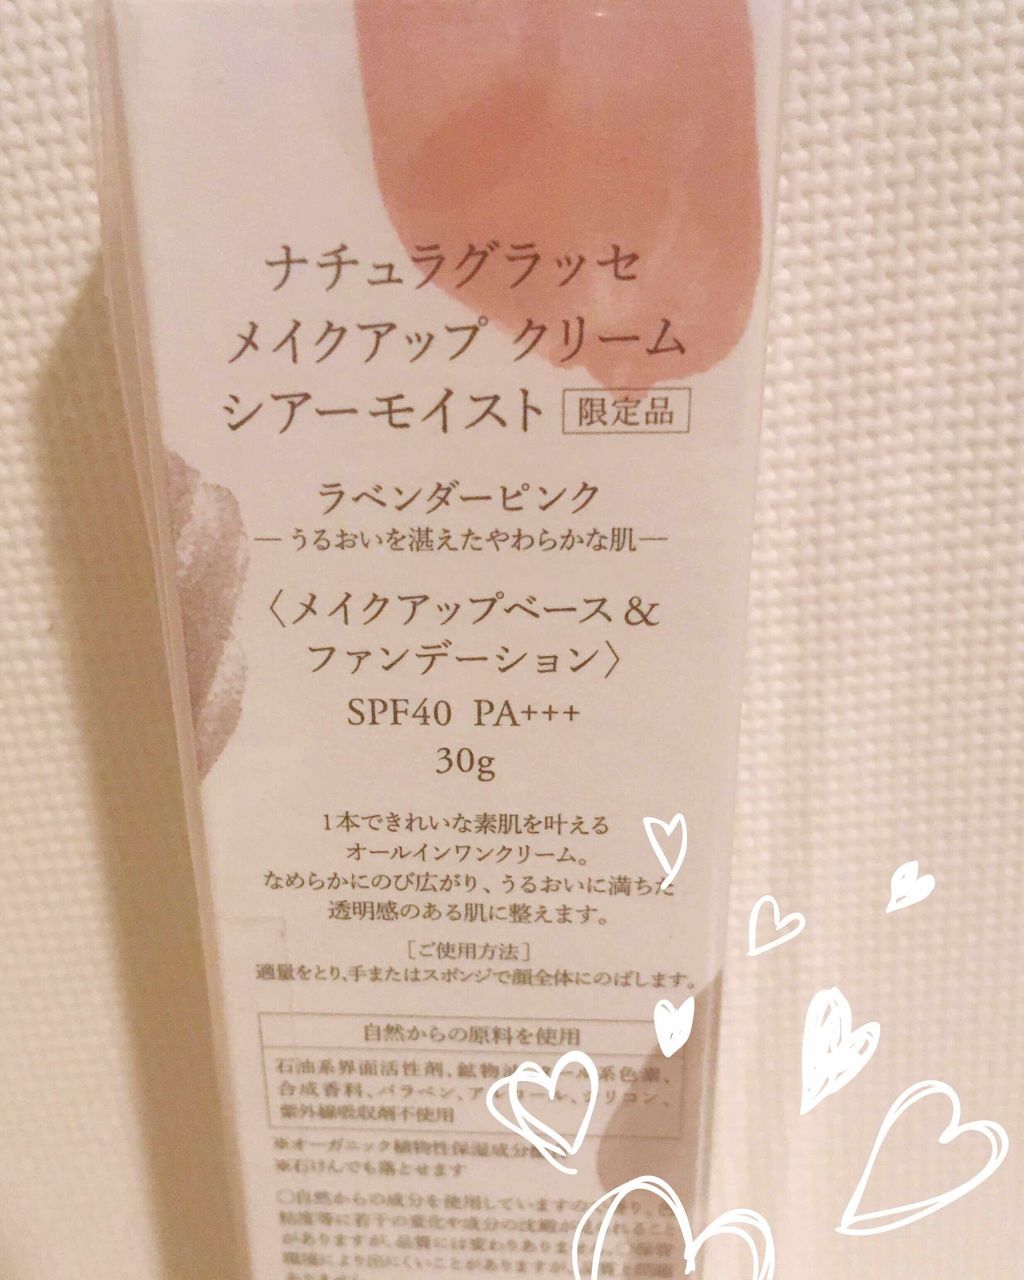 ナチュラグラッセ
メイクアップ クリーム
シアーモイスト 限定品
ラベンダーピンク
―うるおいを湛えたやわらかな肌―
〈メイクアップベース&
ファンデーション〉
SPF40 PA+++
30g
1本できれいな素肌を叶える
オールインワンクリーム。
なめらかにのび広がり、うるおいに満ちた
透明感のある肌に整えます。
[ご使用方法]
適量をとり、手またはスポンジで顔全体にのばします。
自然からの原料を使用
石油系界面活性剤、鉱物油、タール系色素、
合成香料、パラベン、アルコール、シリコン、
紫外線吸収剤不使用
※オーガニック植物性保湿成分
※石けんでも落とせます
○自然からの成分を使用していますの
粘度等に若干の変化や成分の沈殿が
がありますが、品質には変わりありません。
環境により出にくいことがありますが、